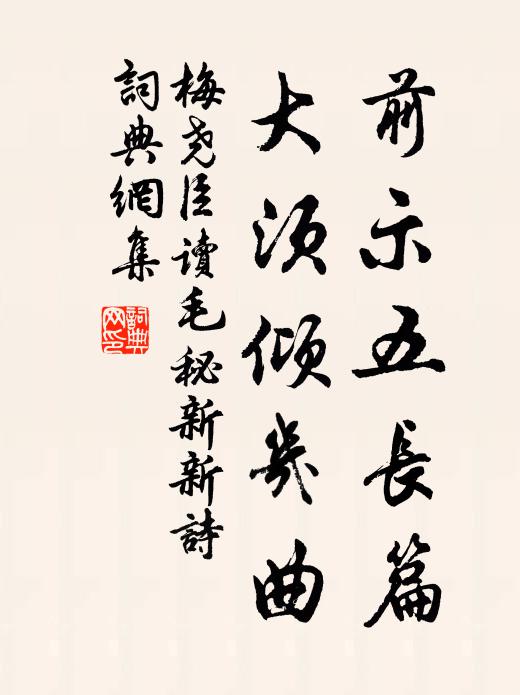 前示五長篇
大須傾幾曲
梅堯臣讀毛秘新新詩
詞典網集
詞典网印